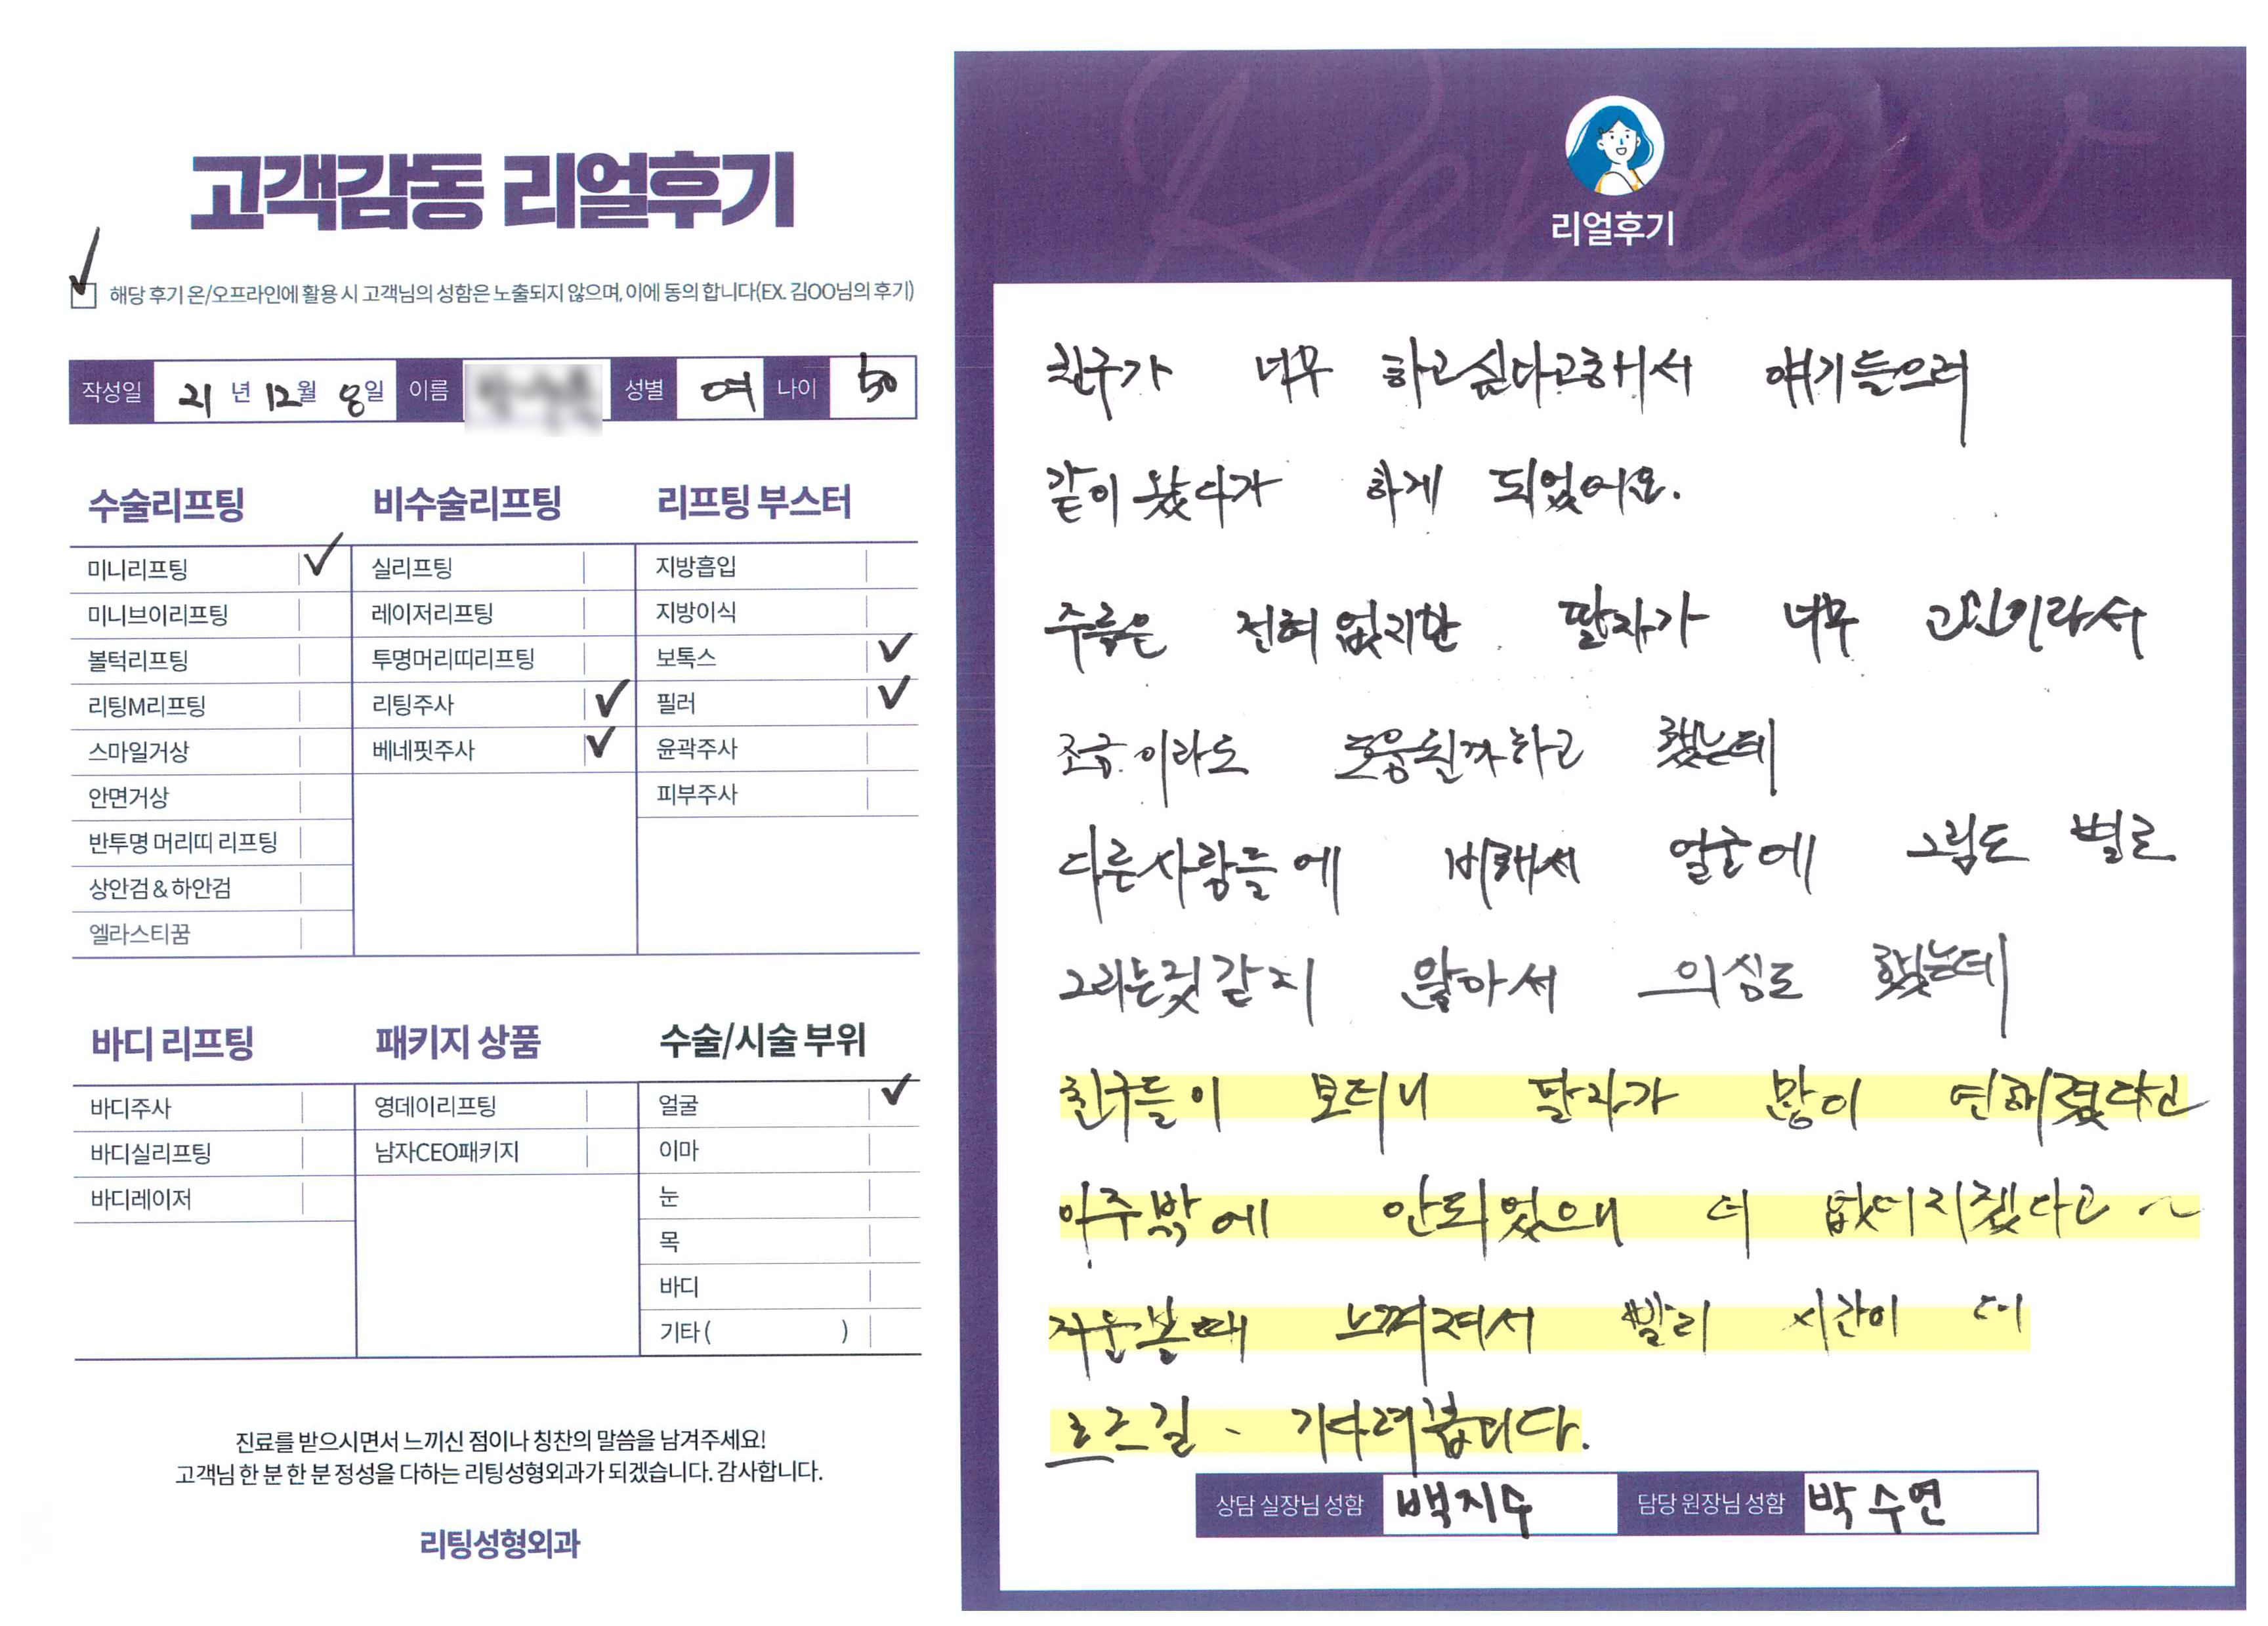 고객감동 리얼후기
해당 후기 온/오프라인에 활용 시 고객님의 성함은 노출되지 않으며, 이에 동의 합니다(EX. 김OO님의 후기)
작성일 21 년 12월 8일 이름 성별 여 나이 50
수술리프팅 비수술리프팅 리프팅 부스터
미니리프팅 실리프팅 지방흡입
미니브이리프팅 레이저리프팅 지방이식
볼턱리프팅 투명머리띠리프팅 보톡스
리팅M리프팅 리팅주사 필러
스마일거상 베네핏주사 윤곽주사
안면거상 피부주사
반투명 머리띠 리프팅
상안검 & 하안검
엘라스티꿈
바디 리프팅 패키지 상품 수술/시술 부위
바디주사 영데이리프팅 얼굴
바디실리프팅 남자CEO패키지 이마
바디레이저 눈
목
바디
기타 ( )
진료를 받으시면서 느끼신 점이나 칭찬의 말씀을 남겨주세요!
고객님 한 분 한 분 정성을 다하는 리팅성형외과가 되겠습니다. 감사합니다.
리팅성형외과
Review
리얼후기
친구가 너무 하고싶다고해서 얘기들으러
같이 왔다가 하게 되었어요.
주름은 전혀 없지만 팔자가 너무 고민이라서
조금이라도 도움될까하고 했는데
다른사람들에 비해서 얼굴에 그림도 별로
그리는것같지 않아서 의심도 했는데
친구들이 보더니 팔자가 많이 연해졌다고
아주밖에 안되었으니 더 없어지겠다고 ~
거울볼때 느껴져서 빨리 시간이 더
흐르길 기다려봅니다.
상담 실장님 성함 백지수 담당 원장님 성함 박수연